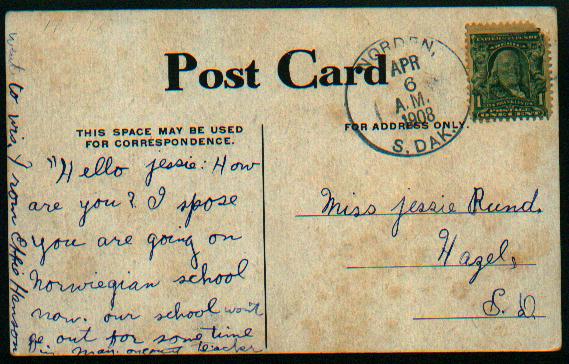 Post Card
THIS SPACE MAY BE USED
FOR CORRESPONDENCE.
FOR ADDRESS ONLY.
NORDEN,
APR
6
A.M.
1908
S. DAK.
1
"Hello jessie: How
are you? I spose
you are going on
norwegian school
now. our school won't
be out for some time
in May. our teacher
From Effie Hanson
Miss jessie Rund.
Hazel,
S. D